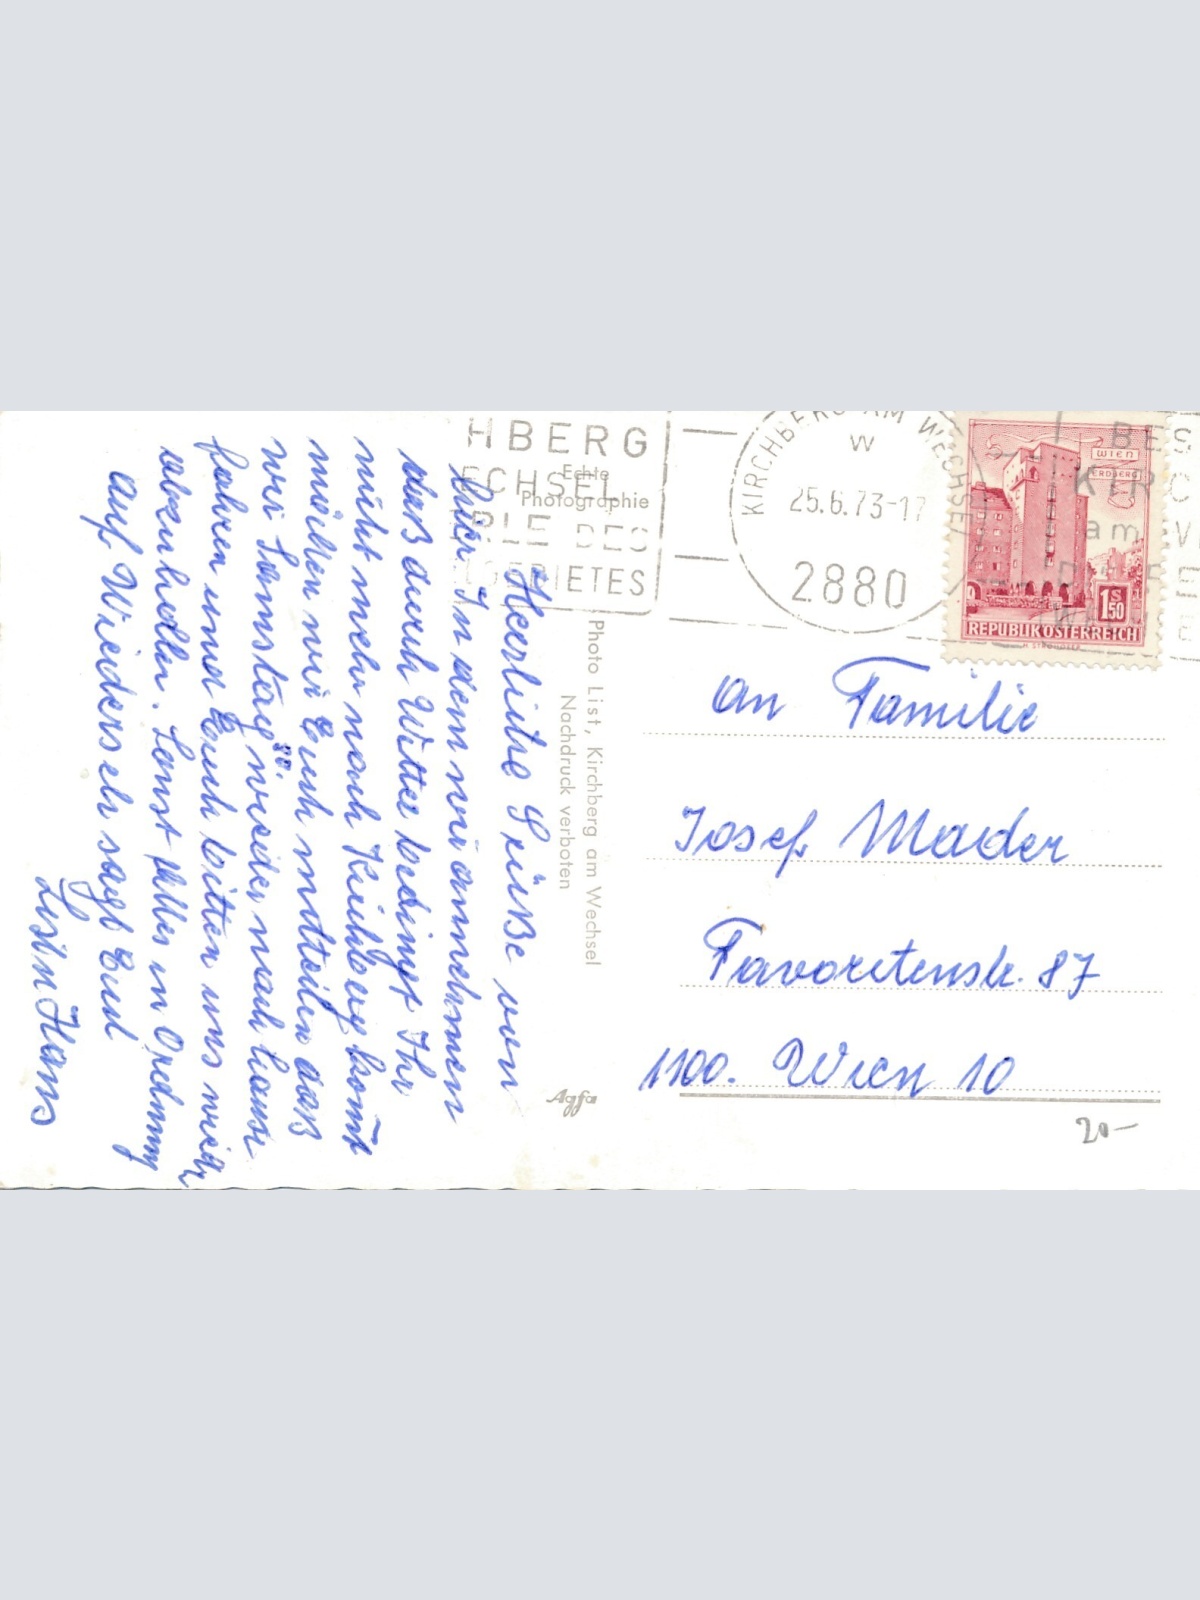 Herzliche Grüße von
hier. In dem wir annehmen
daß durch Witter bedingt Ihr
nicht mehr nach Kirchberg komt
möchten wir Euch mitteilen daß
wir Samstag 30. wieder nach hause
fahren und Euch bitten uns wieder
abzuhollen. Sonst Alles in Ordnung
Auf Wiedersehn sagt Euch
Hans
Echte
Photographie
Photo List, Kirchberg am Wechsel
Nachdruck verboten
Agfa
HBERG
ECHSEL
RLE DES
GEBIETES
KIRCHBERG AM WECHSEL
W
25.6.73-17
2880
WIEN
ERDBERG
1S50
REPUBLIK ÖSTERREICH
BES
KIR
am
An Familie
Josef Mader
Favoritenstr. 87
1100. Wien 10
20-